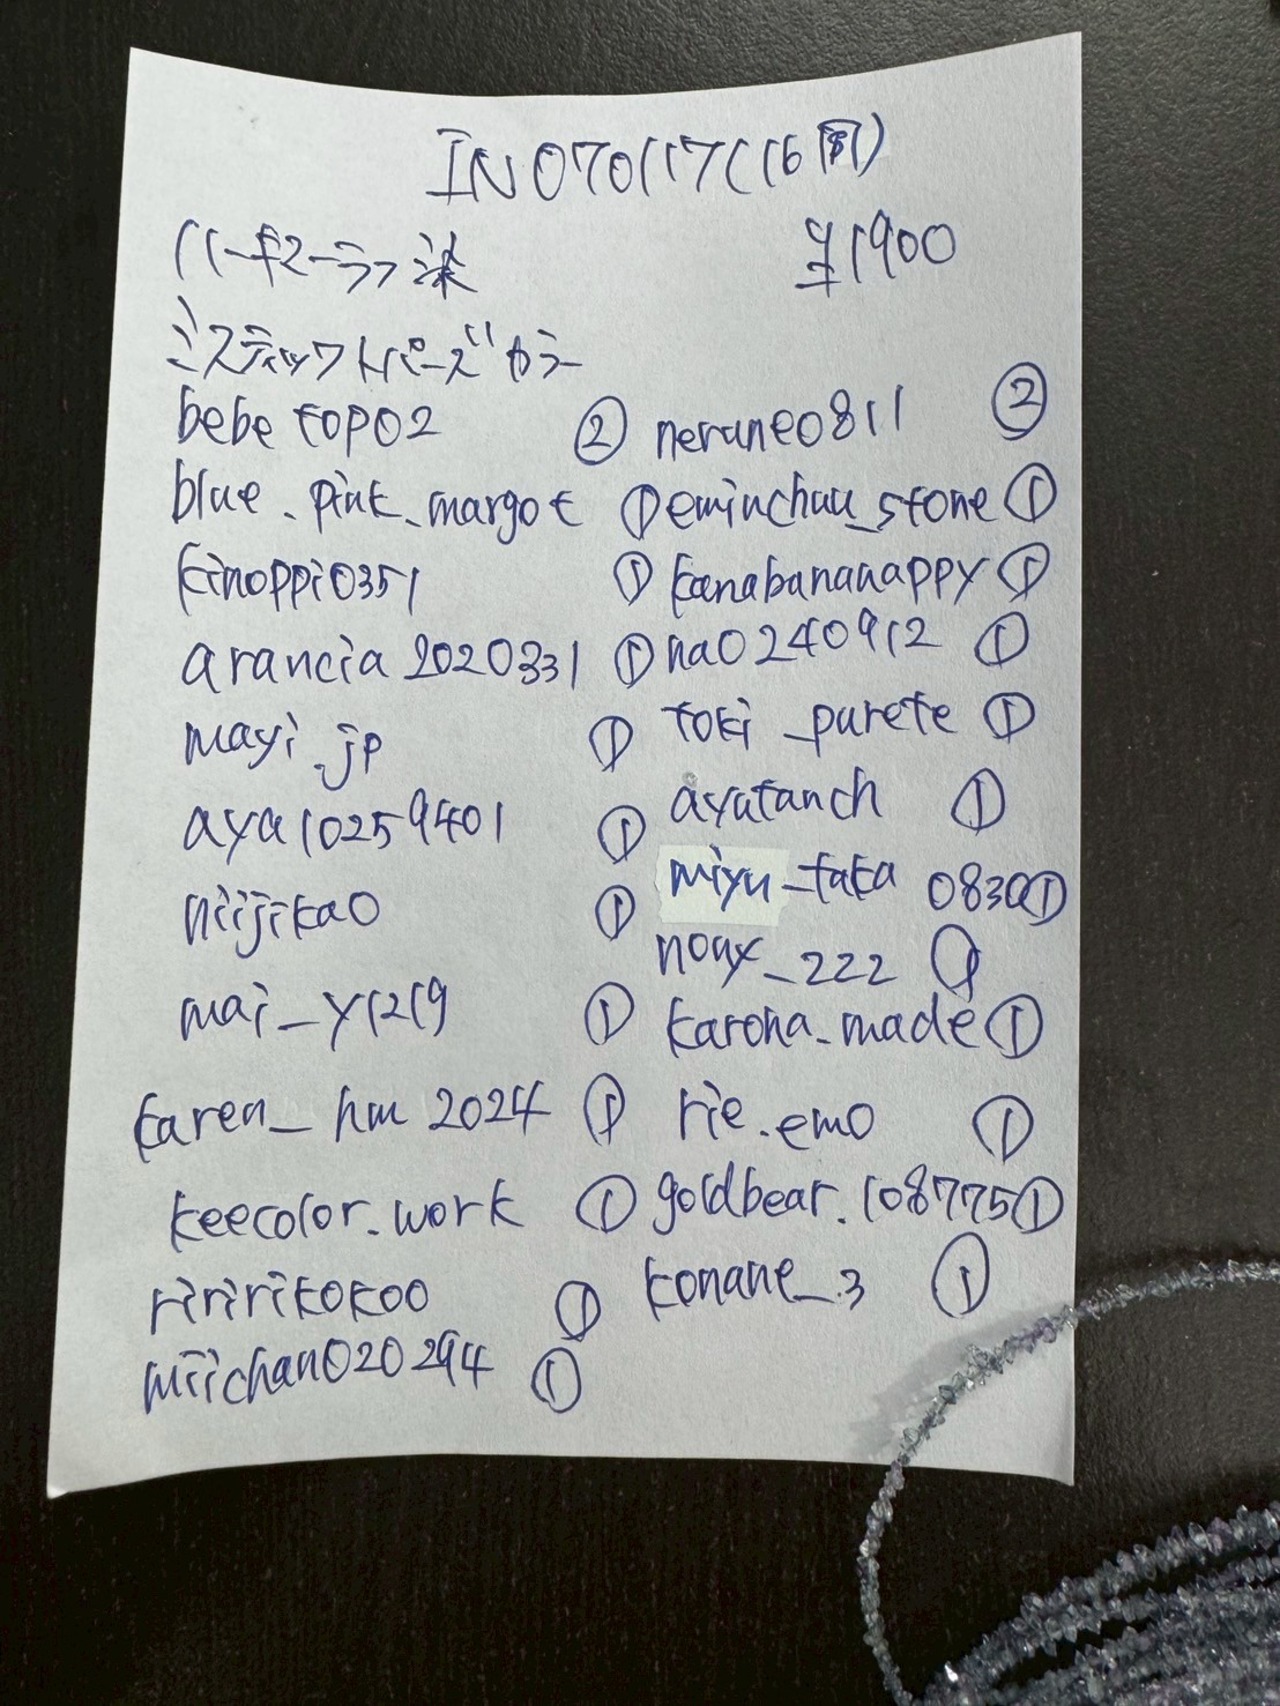 IN070117(16同)
ハーキマーラフ染 ¥1900
ミスティックトパーズカラー
bebetop02 ②
blue_pink_margot ①
kinoppi0351 ①
arancia2020331 ①
mayi.jp ①
aya10259401 ①
niijikao ①
mai_y1219 ①
karen_hm2024 ①
keecolor.work ①
riririkokoo ①
miichan020294 ①
nerune0811 ②
eminchuu_stone ①
kanabananappy ①
na0240912 ①
toki_purete ①
ayatanch ①
miyu_taka0830 ①
noax_222 ①
karona_made ①
rie.emo ①
goldbear.108775 ①
konane_3 ①